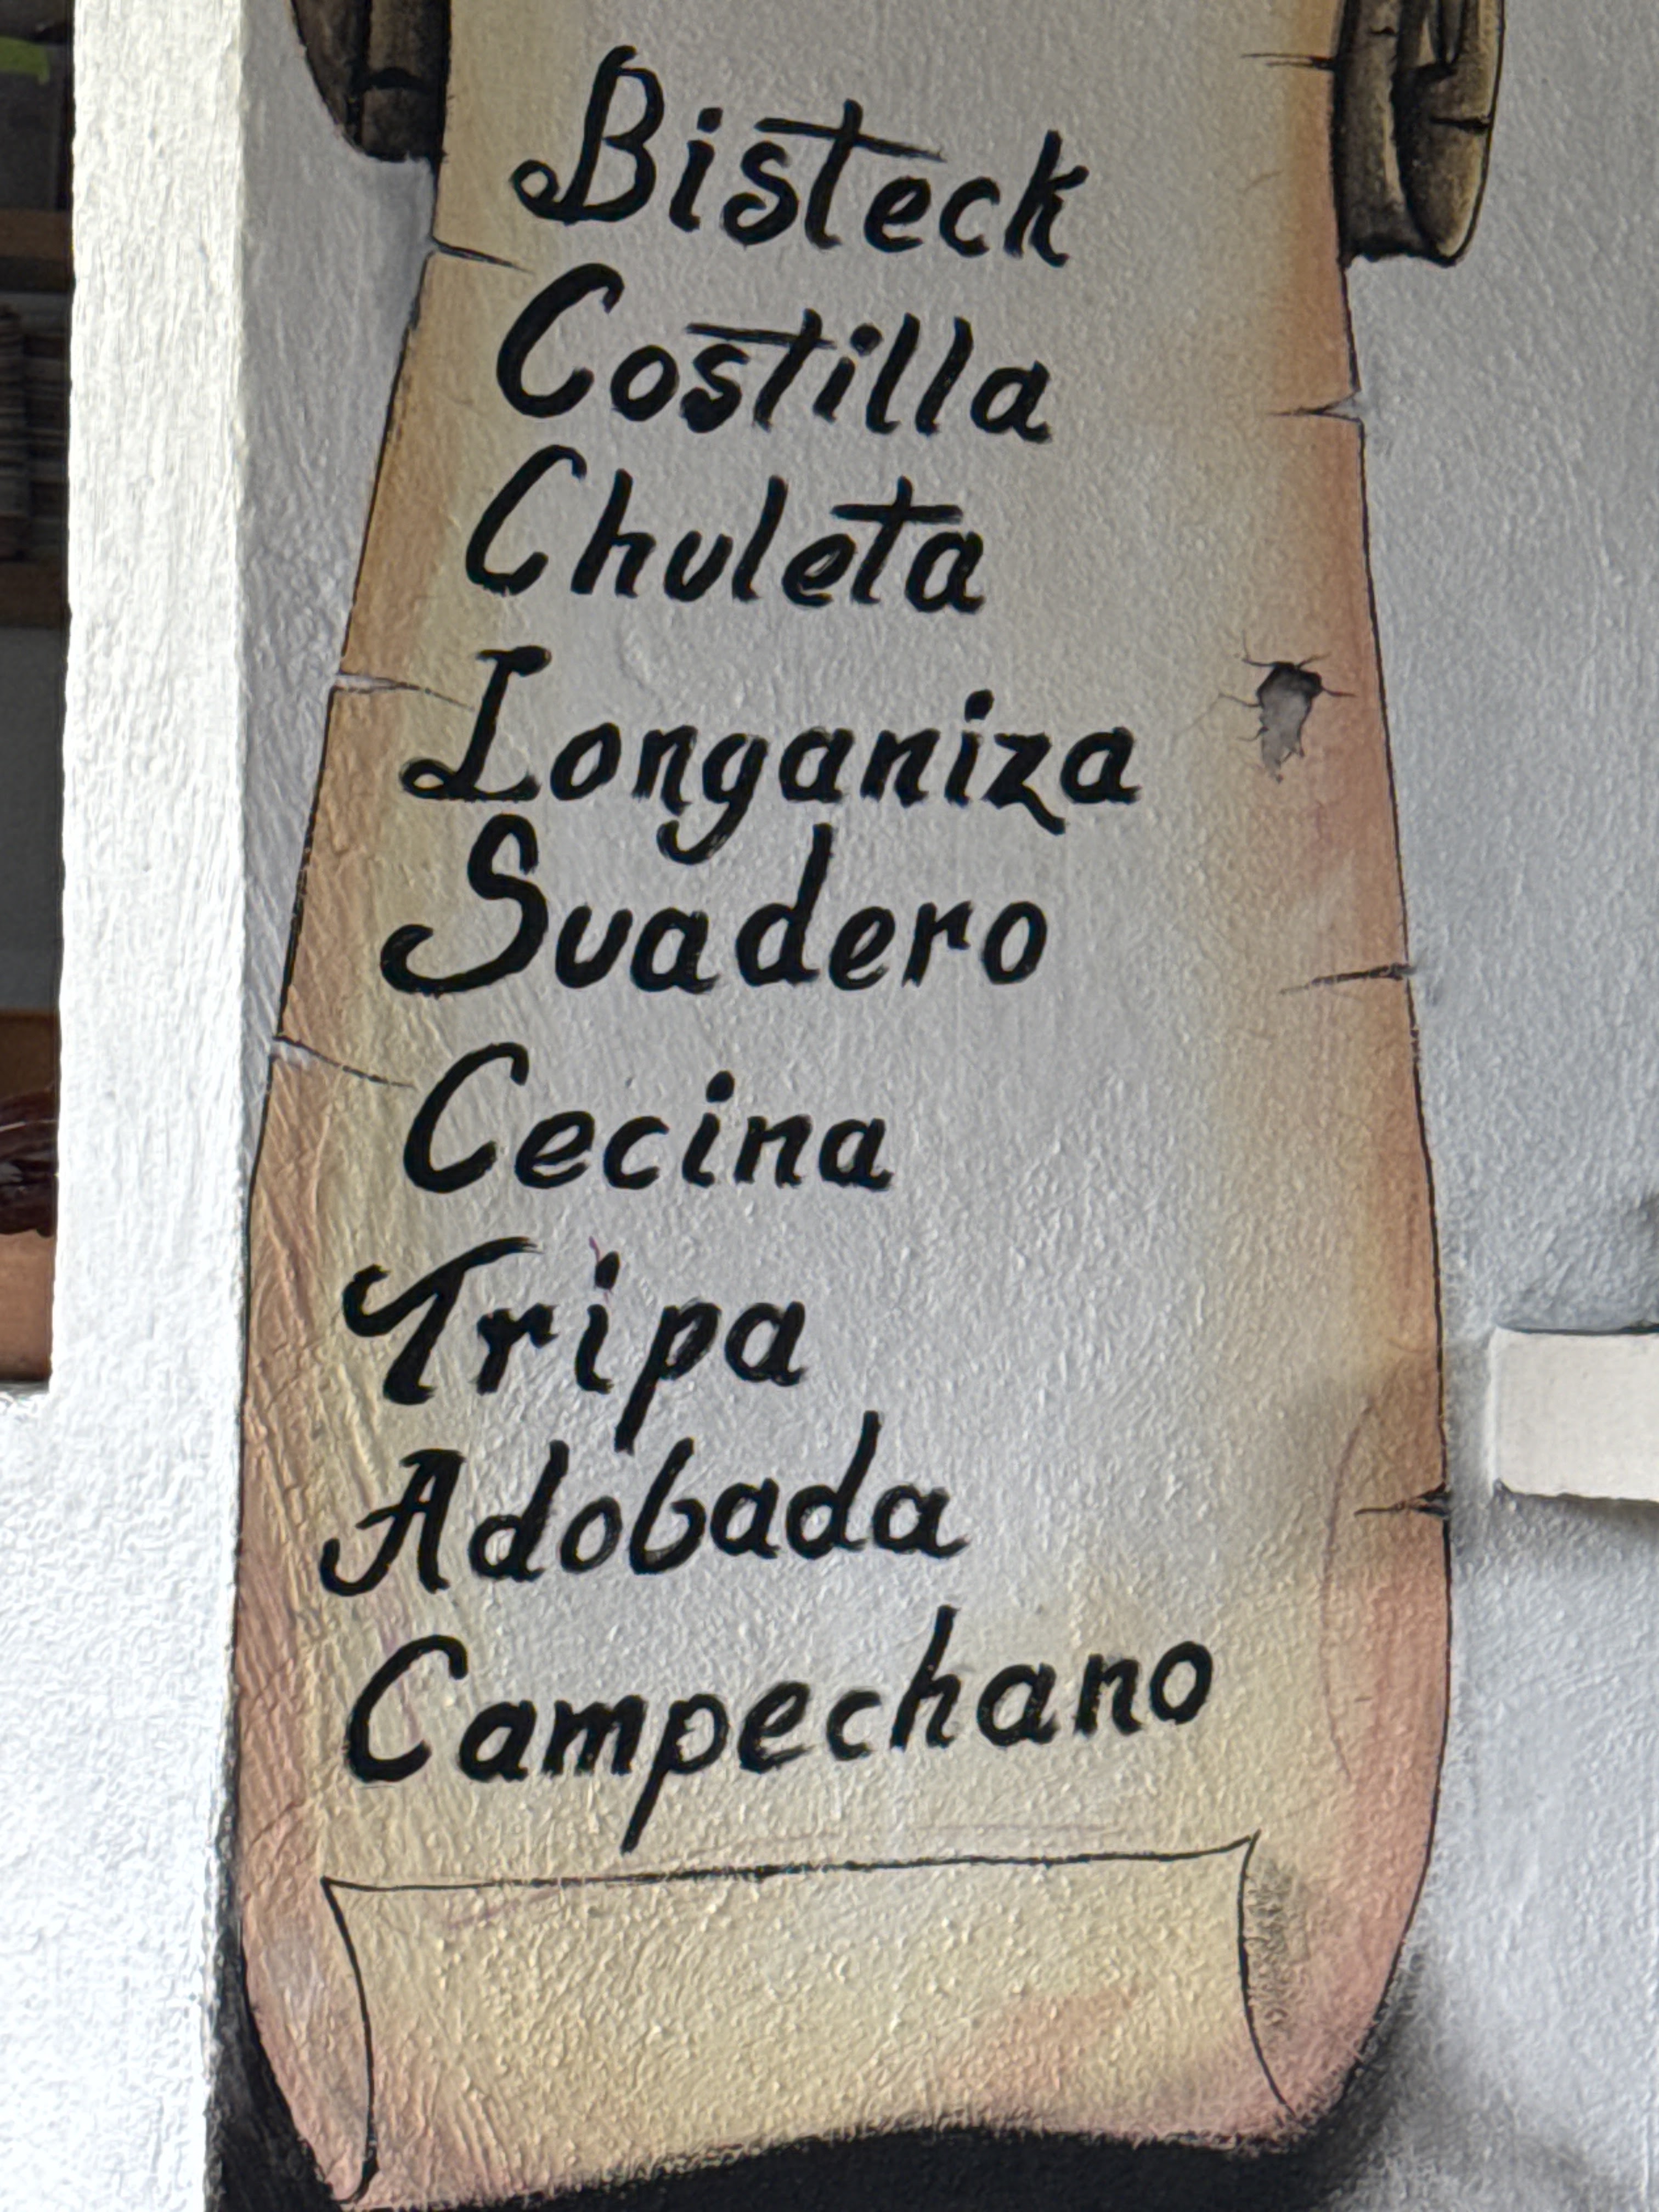 Bisteck
Costilla
Chuleta
Longaniza
Suadero
Cecina
Tripa
Adobada
Campechano